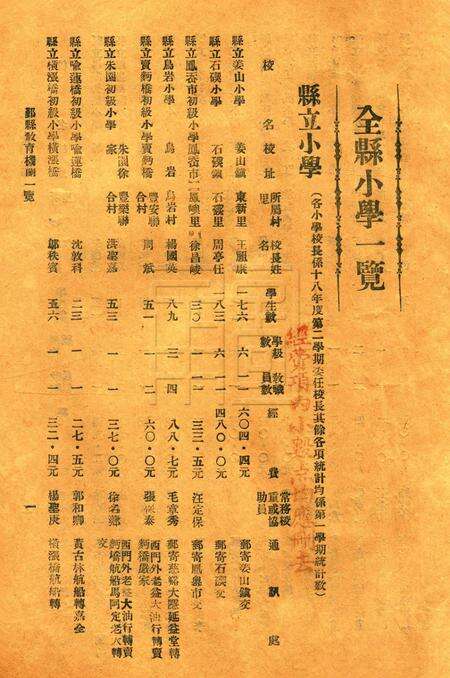 全縣小學一覽
縣立小學（各小學校長係十八年度第二學期委任校長其餘各項統計均係第一學期統計數）
校名 校址 所屬村里 校長姓名 學生數 學級數 教職員數 經費 常務校董或協助員 通訊處
縣立姜山小學 姜山鎮 東新里 王願康 一七六 六 一一 六〇四·四元 郵寄姜山鎮交
縣立石碶小學 石碶鎮 石碶里 周亭任 一八三 六 一一 四八〇·〇元 郵寄石碶交
縣立鳳岙市初級小學 鳳岙市 鳳噢里 徐昌峻 三〇 一 一 三三·五元 汪定保 郵寄鳳岙市交
縣立鳥岩小學 鳥岩 鳥岩村 楊國英 八九 三 四 八八·七元 毛章秀 郵寄慈谿大隱延益堂轉
縣立賣麪橋初級小學 賣麪橋 豐安聯合村 周斌 五一 一 二 六〇·〇元 張 泰 西門外老益大油行轉賣麪橋嚴家
縣立朱園初級小學 朱園徐家 豐樂聯合村 洪聖嘉 五三 一 一 三七·〇元 徐名 西門外老益大油行轉賣麪橋航船馬阿定老大轉交
縣立喻蓮橋初級小學 喻蓮橋 沈敦科 二三 一 一 二七·五元 郭和卿 黃古林航船轉嘉 
縣立橫漲橋初級小學 橫漲橋 鄔秩賓 五六 一 一 三二·四元 楊聖庚 橫漲橋航船轉
鄞縣教育機關一覽 一
經費項內小數點 地應刪去